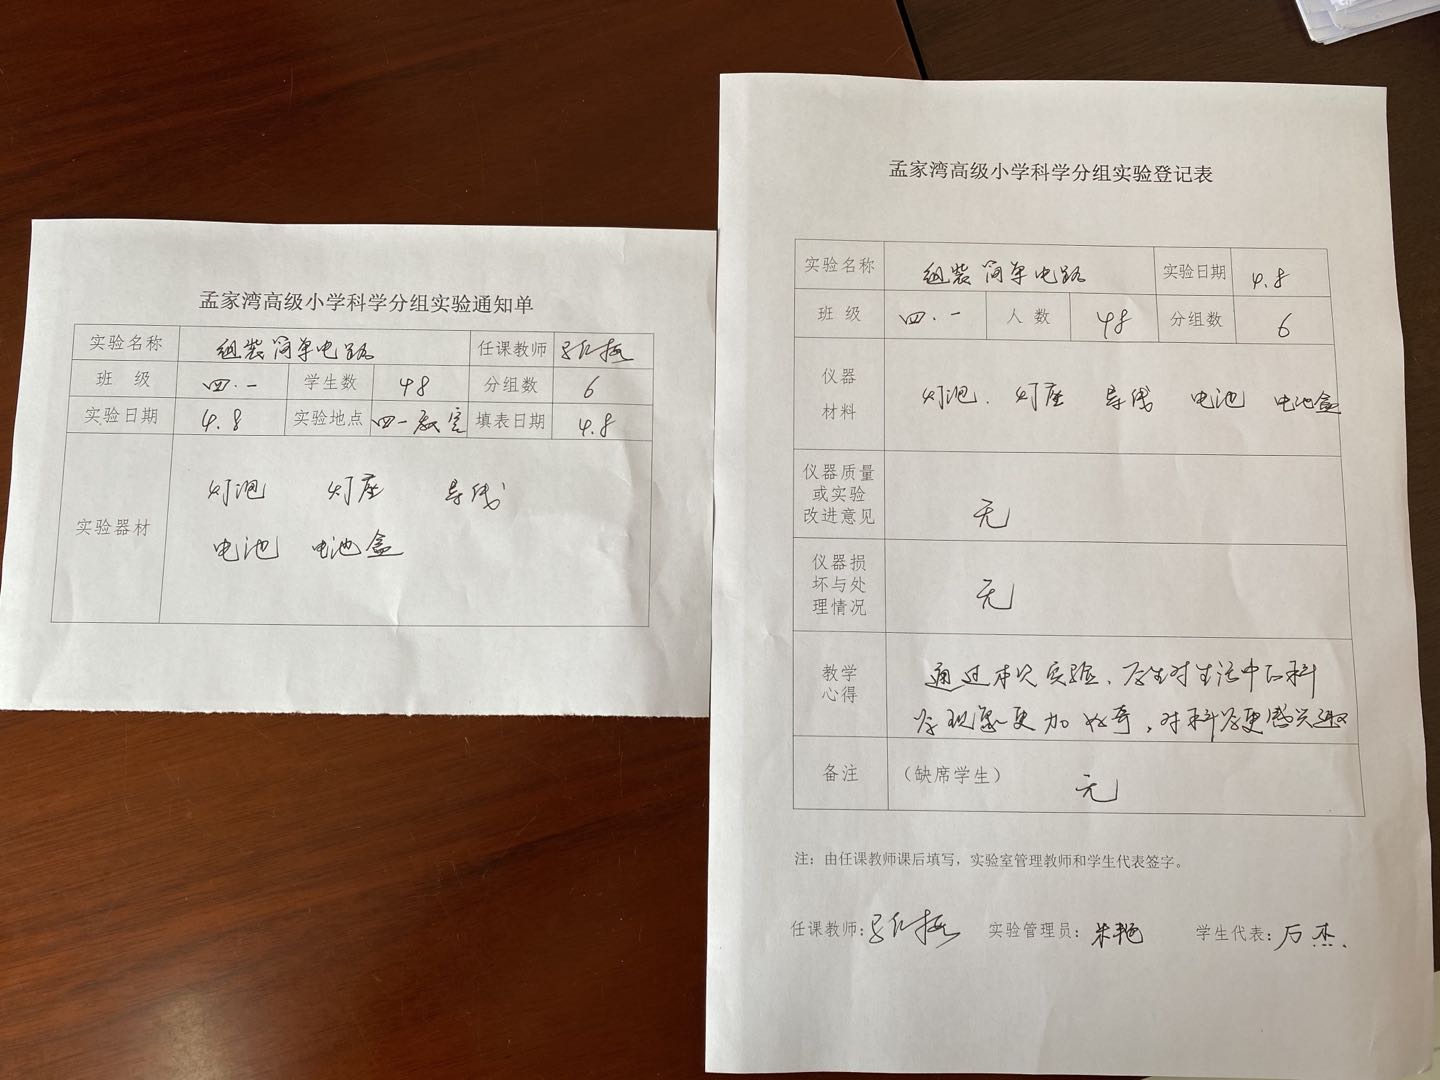 孟家湾高级小学科学分组实验通知单
实验名称 组装简单电路 任课教师
班 级 四.一 学生数 48 分组数 6
实验日期 4.8 实验地点 四一教室 填表日期 4.8
实验器材
灯泡 灯座 导线
电池 电池盒
孟家湾高级小学科学分组实验登记表
实验名称 组装简单电路 实验日期 4.8
班 级 四.一 人 数 48 分组数 6
仪器
材料
灯泡. 灯座 导线 电池 电池盒
仪器质量
或实验
改进意见
无
仪器损
坏与处
理情况
无
教学
心得
通过本次实验、学生对生活中的科
学现象更加好奇,对科学更感兴趣
备注 (缺席学生) 无
注：由任课教师课后填写，实验室管理教师和学生代表签字。
任课教师: 实验管理员: 朱艳 学生代表: 万杰.